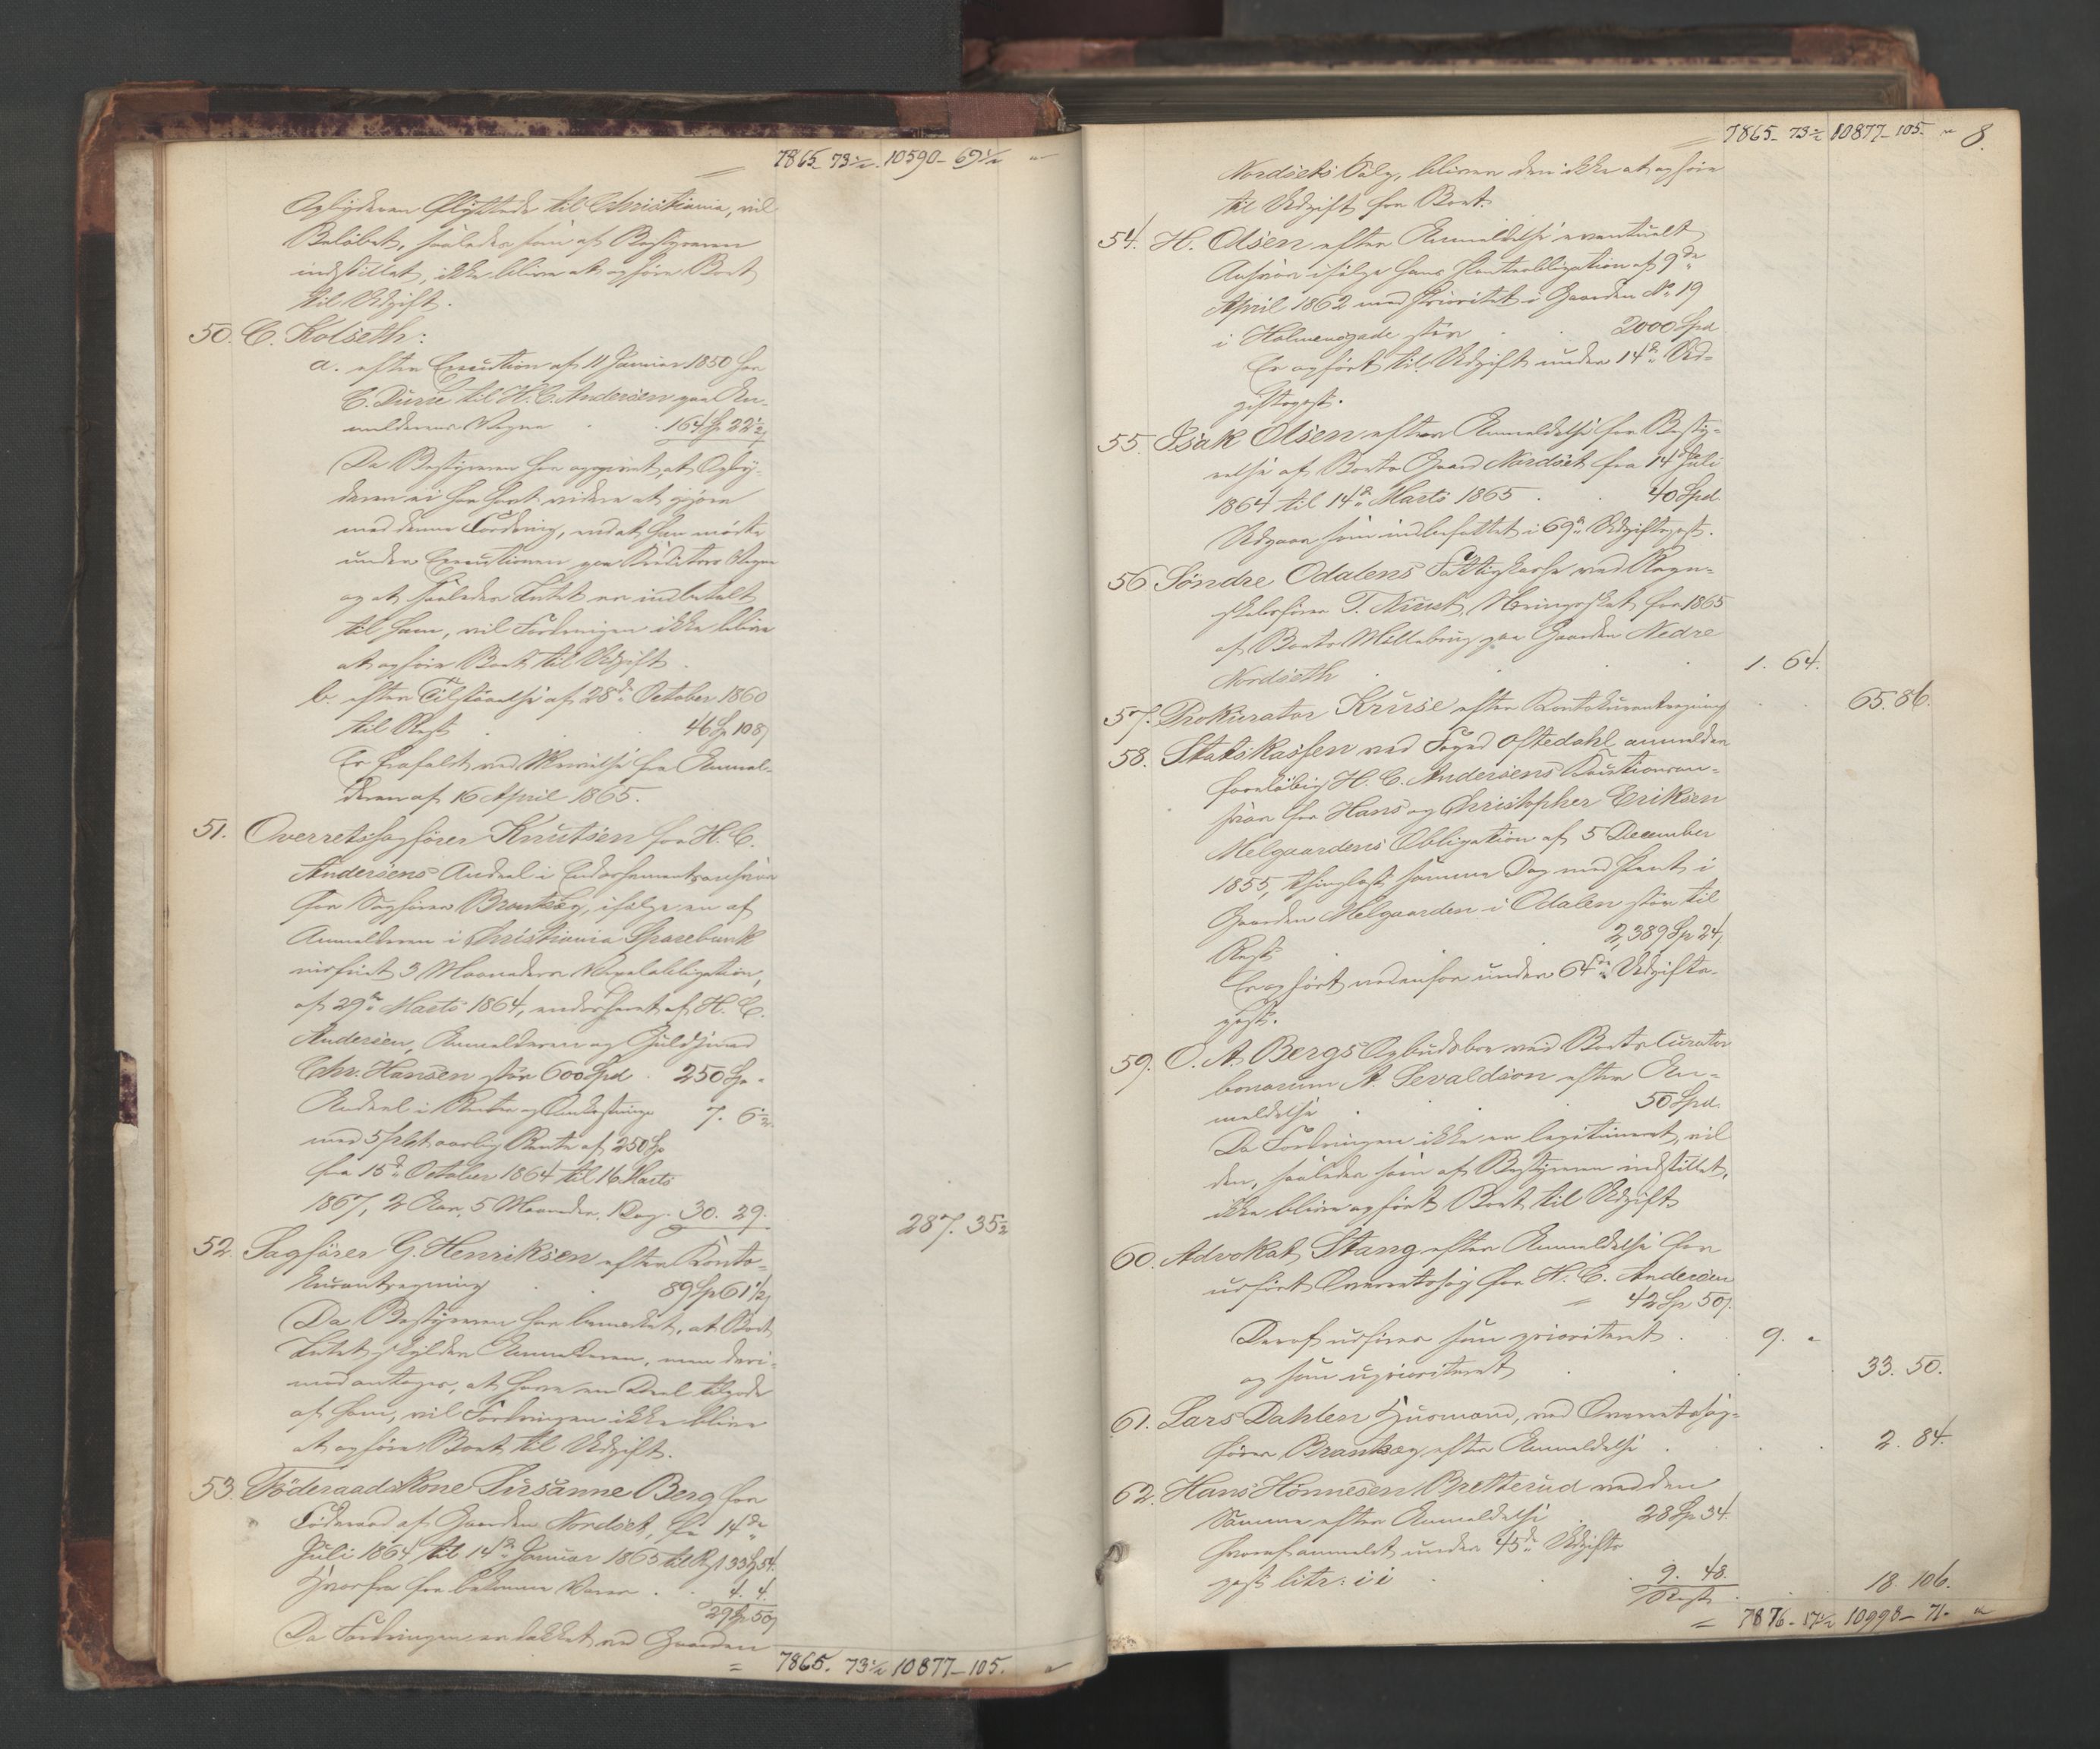 7865. 73½. 10590 - 69½ "
Opbyderen flyttede til Christiania, vil
Beløbet, saaledes som af Bestyreren
indstillet, ikke blive at opføre Boet
til Udgift.
50. C. Kolseth:
a. efter Execution af 11 Januar 1850 hos
C. Durie til H. C. Andersen paa An-
melderens Vegne 164 Sp 22½ s
Da Bestyreren har oppgivet, at Opby-
deren ei har havt videre at gjøre
med denne Fordring, end at han mødte
under Executionen paa Kreditors Vegne
og at saaledes Intet er indbetalt
til ham, vil Fordringen ikke blive
at opføre Boet til Udgift.
b. efter Tilstaaelse af 28de October 1860
til Rest 46 Sp 108 s
Er frafaldt ved Skrivelse fra Anmel-
deren af 16 April 1865.
51. Overretssagfører Knutsen for H. C.
Andersens Andeel i Endossementsansvar
for Sagfører Brantzeg, ifølge en af
Anmelderen i Christiania Sparebank
indfriet 3 Maaneders Vexelobligation,
af 29de Marts 1864, endosseret af H. C.
Andersen, Anmelderen og Guldsmed
Chr. Hansen stor 600 Spd. 250 Sp "
Andeel i Renter og Omkostninger 7. 6½
med 5 pCt aarlig Rente af 250 Sp
fra 15de October 1864 til 16 Marts
1867, 2 Aar, 5 Maaneder, 1 Dag. 30. 29.
287. 35½
52. Sagfører G. Henriksen efter Konto-
kurantregning 89 Sp 61½ s
Da Bestyreren har bemærket, at Boet
Intet skylder Anmelderen, men deri-
mod antages, at have en Deel tilgode
af ham, vil Fordringen ikke blive
at opføre Boet til Udgift.
53. Föderaadskone Sirsanne Berg for
Föderaad af Gaarden Nordset, fra 14de
Juli 1864 til 14de Januar 1865 til Rest 33 Sp 54.
Hvorfra for bekomne Varer 4. 4.
29 Sp 50 s
Da Fordringen er dækket ved Gaarden
= 7865. 73½ 10877 - 105. "
7865 - 73½ 10877 - 105 - " 8.
Nordsets Salg, bliver den ikke at opføre
til Udgift for Boet.
54. H. Olsen efter Anmeldelse eventuelt
Ansvar ifølge hans Panteobligation af 9de
April 1862 med Prioritet i Gaarden No 19
i Holmensgade stor 2000 Spd
Er opført til Udgift under 14de Ud-
giftspost.
55. Isak Olsen efter Anmeldelse for Besty-
relse af Boets Gaard Nordset fra 14de Juli
1864 til 14de Marts 1865 40 Spd.
Udgaar som indbefattet i 69de Udgiftspost.
56 Söndre Odalens Fattigkasse ved Regn-
skabsfører T. Knust, Næringsskat for 1865
af Boets Möllebrug paa Gaarden Nedre
Nordseth 1. 64.
57. Prokurator Kruse efter Kontokurantregning 65. 86.
58. Statskassen ved Foged Oftedahl anmelder
foreløbig H. C. Andersens Kautionsan-
svar for Hans og Christopher Eriksen
Melgaardens Obligation af 5 December
1855, thinglæst samme Dag med Pant i
Gaarden Melgaarden i Odalen stor til
Rest 2,389 Sp 24 s
Er opført nedenfor under 64de Udgifts-
post.
59. O. A. Bergs Opbudsbo ved Boets Curator
bonorum A. Sevaldson efter An-
meldelse 50 Spd.
Da Fordringen ikke er legitimeret, vil
den, saaledes som af Bestyreren indstillet,
ikke blive opført Boet til Udgift
60. Advokat Stang efter Anmeldelse for
udført Overretssag for H. C. Andersen
= 42 Sp 50 s.
Deraf udføres som prioriteret 9. "
og som uprioriteret 33. 50.
61. Lars Dahlen Husmand, ved Overretssag-
fører Brantzeg efter Anmeldelse 2. 84.
62. Hans Hönnesen Bretterud ved den
Samme efter Anmeldelse 28 Sp 34.
hvoraf anmeldt under 45de Udgifts
post litr: i i 9. 48.
Rest 18. 106.
= 7876 - 17½ 10998 - 71 - "